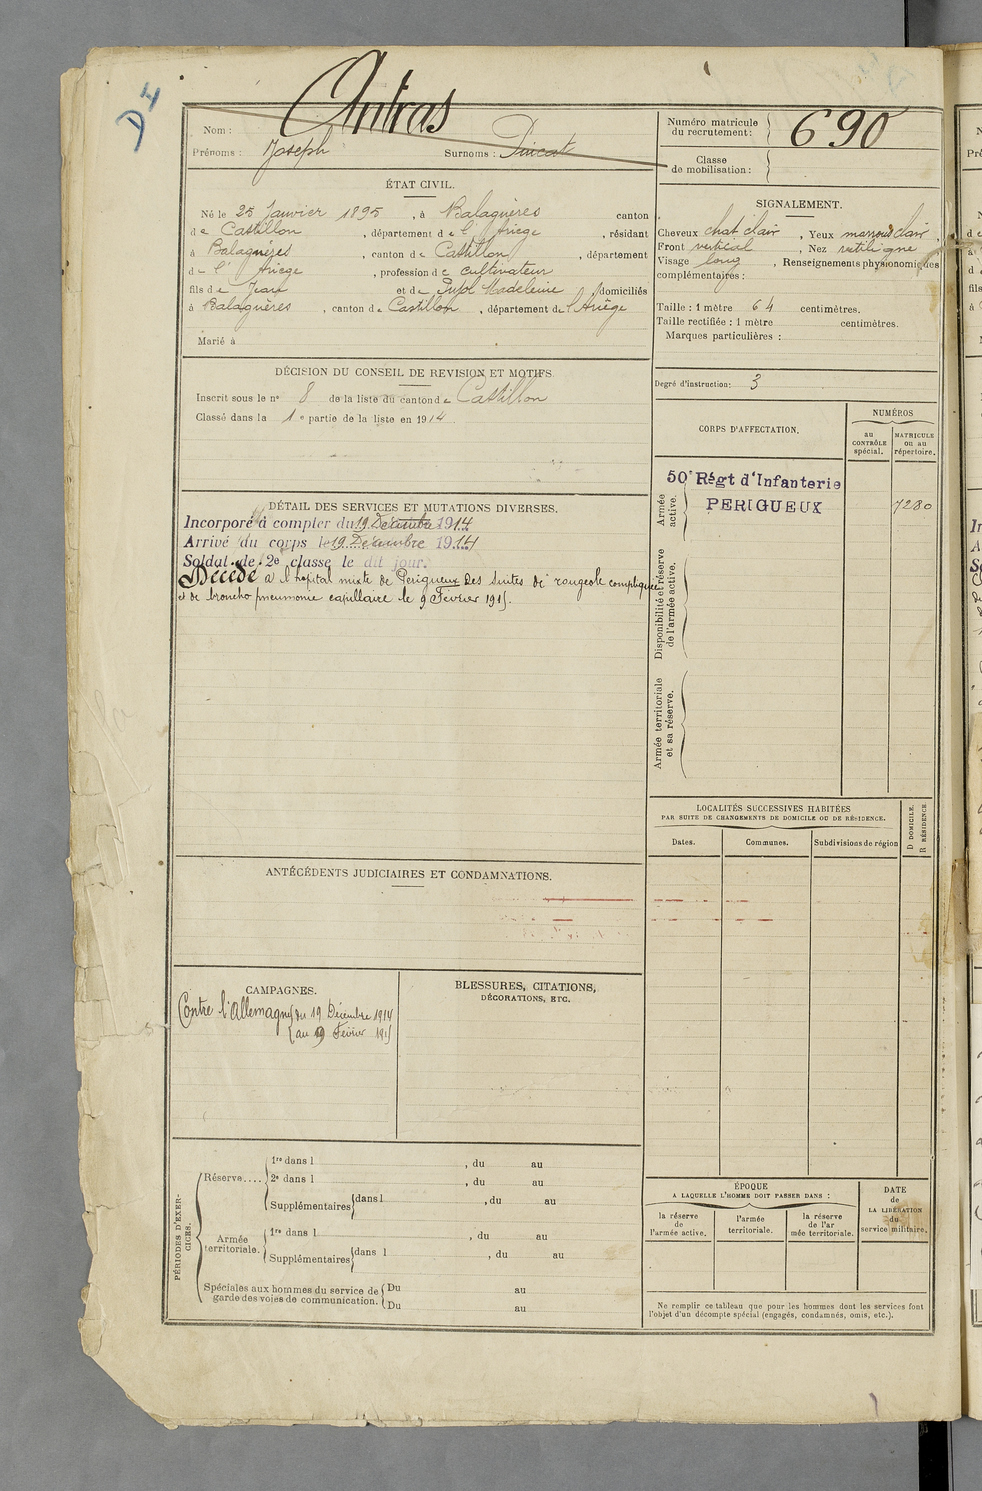 D4
Antras
Nom :
Prénoms : Joseph Surnoms :
Numéro matricule du recrutement : 690
Classe de mobilisation :
ÉTAT CIVIL.
Né le 25 Janvier 1895, à Balaguères canton
de Castillon, département de l'Ariège, résidant
à Balaguères, canton de Castillon, département
de l'Ariège, profession de cultivateur
fils de Jean et de Pujol Madeleine domiciliés
à Balaguères, canton de Castillon, département de l'Ariège
Marié à
SIGNALEMENT.
Cheveux chat clair, Yeux marrons clair,
Front vertical, Nez rectiligne
Visage long, Renseignements physionomiques
complémentaires :
Taille : 1 mètre 64 centimètres.
Taille rectifiée : 1 mètre centimètres.
Marques particulières :
DÉCISION DU CONSEIL DE REVISION ET MOTIFS.
Inscrit sous le n° 8 de la liste du canton de Castillon
Classé dans la 1e partie de la liste en 1914
Degré d'instruction : 3
CORPS D'AFFECTATION.
NUMÉROS
au CONTRÔLE spécial.
MATRICULE ou au répertoire.
Armée active.
50e Régt d'Infanterie
PERIGUEUX
7280
Disponibilité et réserve de l'armée active.
Armée territoriale et sa réserve.
DÉTAIL DES SERVICES ET MUTATIONS DIVERSES.
Incorporé à compter du 19 Décembre 1914
Arrivé au corps le 19 Décembre 1914
Soldat de 2e classe le dit jour.
Décédé à l'hopital mixte de Périgueux des suites de rougeole compliquée
et de broncho pneumonie capillaire le 9 Février 1915.
LOCALITÉS SUCCESSIVES HABITÉES
PAR SUITE DE CHANGEMENTS DE DOMICILE OU DE RÉSIDENCE.
Dates. Communes. Subdivisions de région
D DOMICILE.
R RÉSIDENCE
ANTÉCÉDENTS JUDICIAIRES ET CONDAMNATIONS.
CAMPAGNES.
Contre l'Allemagne du 19 Décembre 1914
au 9 Février 1915
BLESSURES, CITATIONS,
DÉCORATIONS, ETC.
PÉRIODES D'EXERCICES.
Réserve....
1re dans l , du au
2e dans l , du au
Supplémentaires dans l , du au
Armée territoriale.
1re dans l , du au
Supplémentaires dans l , du au
Spéciales aux hommes du service de garde des voies de communication.
Du au
Du au
ÉPOQUE
A LAQUELLE L'HOMME DOIT PASSER DANS :
la réserve de l'armée active.
l'armée territoriale.
la réserve de l'armée territoriale.
DATE de LA LIBÉRATION du service militaire.
Ne remplir ce tableau que pour les hommes dont les services font
l'objet d'un décompte spécial (engagés, condamnés, omis, etc.).